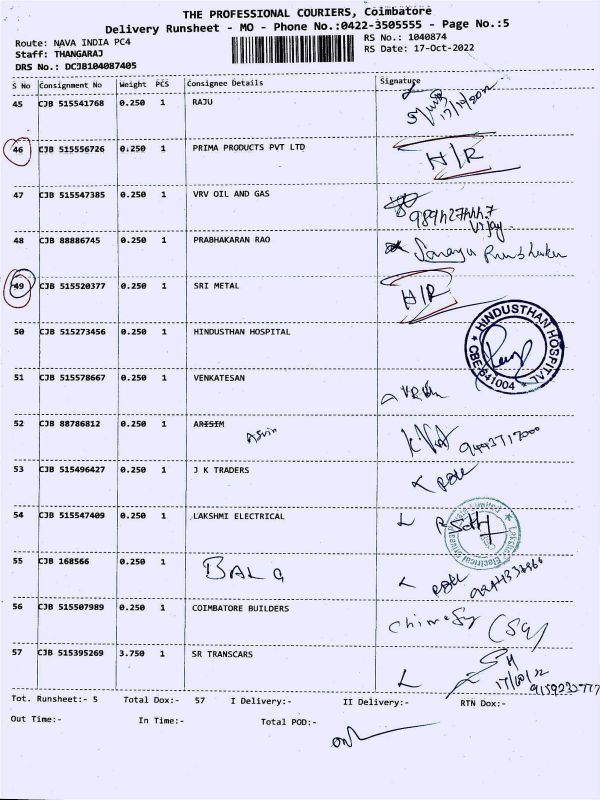 THE PROFESSIONAL COURIERS, Coimbatore
Delivery Runsheet - MO - Phone No.:0422-3505555 - Page No.:5
Route: NAVA INDIA PC4 RS No.: 1040874
Staff: THANGARAJ RS Date: 17-Oct-2022
DRS No.: DCJB104087405
S No Consignment No Weight PCS Consignee Details Signature
45 CJB 515541768 0.250 1 RAJU
46 CJB 515556726 0.250 1 PRIMA PRODUCTS PVT LTD H/R
47 CJB 515547385 0.250 1 VRV OIL AND GAS
Vijay
48 CJB 88886745 0.250 1 PRABHAKARAN RAO
49 CJB 515520377 0.250 1 SRI METAL H/R
50 CJB 515273456 0.250 1 HINDUSTHAN HOSPITAL
HINDUSTHAN HOSPITAL
CBE-641004
51 CJB 515578667 0.250 1 VENKATESAN
52 CJB 88786812 0.250 1 ARISIM
53 CJB 515496427 0.250 1 J K TRADERS
54 CJB 515547409 0.250 1 LAKSHMI ELECTRICAL
55 CJB 168566 0.250 1
56 CJB 515507989 0.250 1 COIMBATORE BUILDERS
57 CJB 515395269 3.750 1 SR TRANSCARS
Tot. Runsheet:- 5 Total Dox:- 57 I Delivery:- II Delivery:- RTN Dox:-
Out Time:- In Time:- Total POD:-